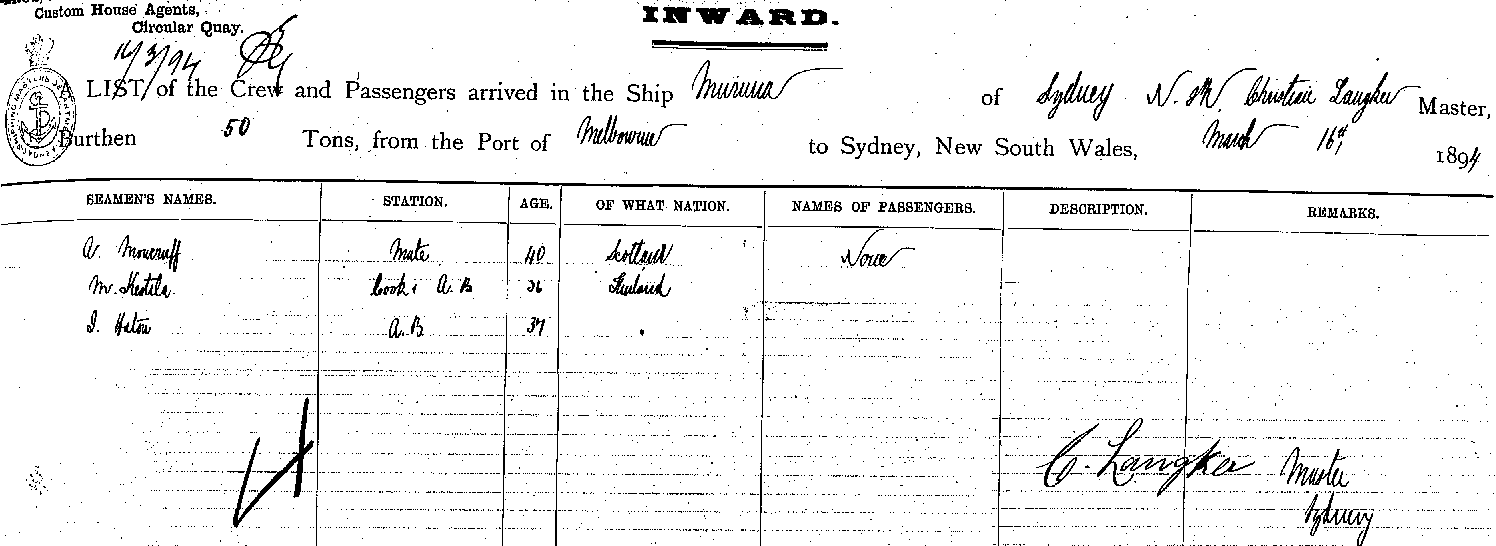 Custom House Agents,
Circular Quay.
INWARD.
16/3/94
LIST of the Crew and Passengers arrived in the Ship Muruna of Sydney N.S.W. Christian Langker Master,
Burthen 50 Tons, from the Port of Melbourne to Sydney, New South Wales, March 16th 1894
SEAMEN'S NAMES. STATION. AGE. OF WHAT NATION. NAMES OF PASSENGERS. DESCRIPTION. REMARKS.
A. Moncruff Mate 40 Scotland None
M. Kestila Cook & A.B 26 Finland
I. Haton A.B 37 "
C. Langker Master
Sydney